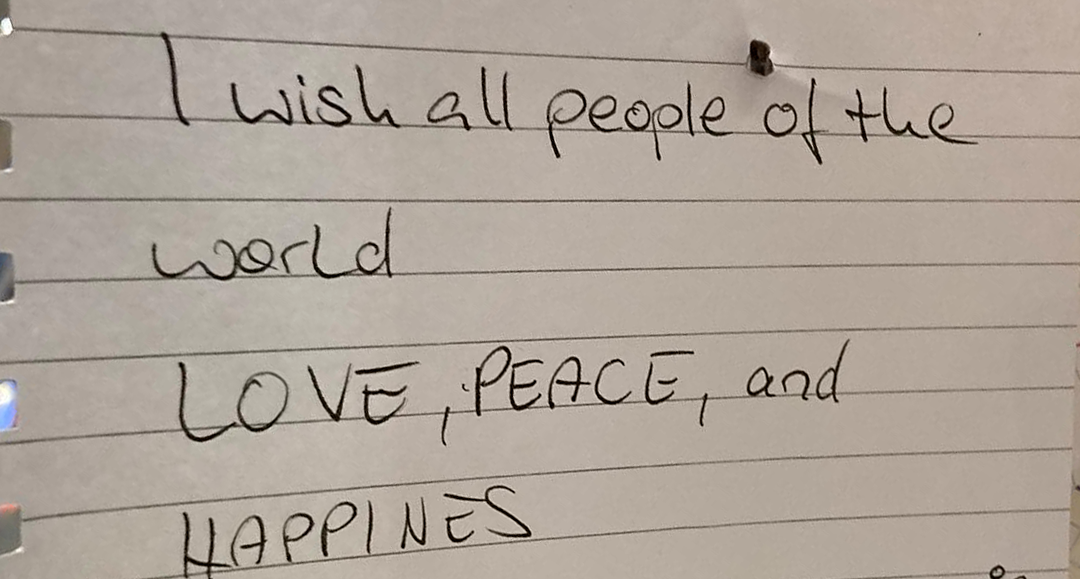 I wish all people of the
world
LOVE, PEACE, and
HAPPINES